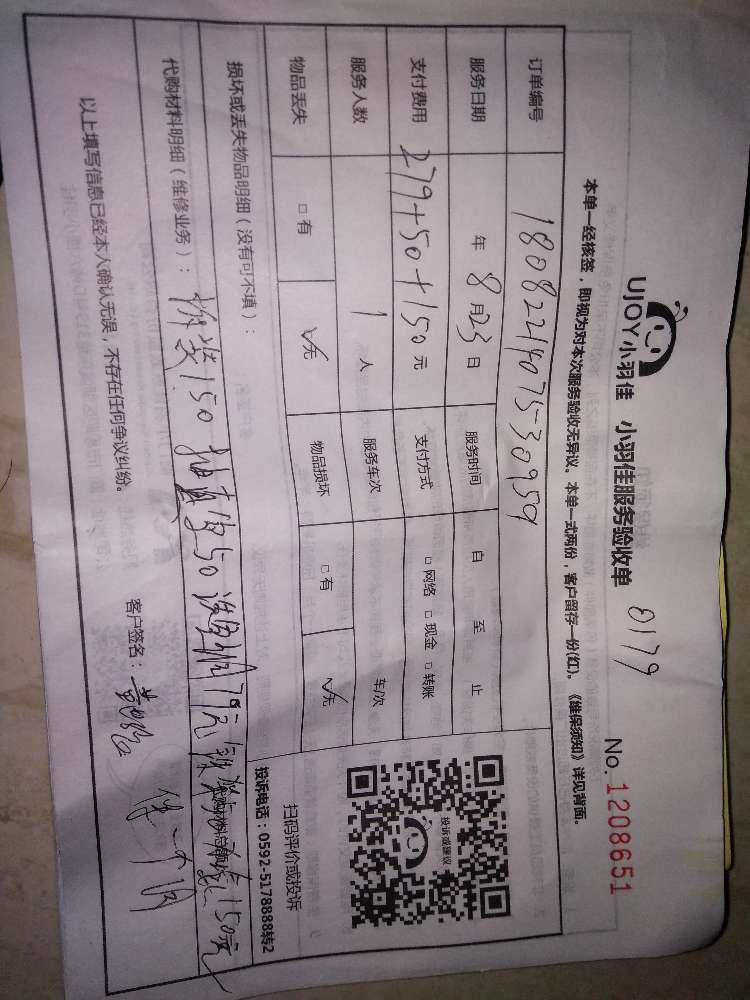 UJOY小羽佳 小羽佳服务验收单 0179
No.1208651
本单一经核签，即视为对本次服务验收无异议。本单一式两份，客户留存一份(红)。《维保须知》详见背面。
订单编号 18082214075-30959
服务日期 年 8月23日 服务时间 自 至 止
支付费用 279+50+150元 支付方式 □网络 □现金 □转账
服务人数 1 人 服务车次 车次
物品丢失 □有 ☑无 物品损坏 □有 ☑无
扫码评价或投诉
投诉电话：0592-5178888转2
投诉或建议
损坏或丢失物品明细（没有可不填）：
代购材料明细（维修业务）： 拆装150 抽真空50 洗 79元 150元
以上填写信息已经本人确认无误，不存在任何争议纠纷。
客户签名：